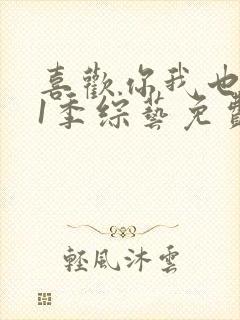 喜歡你我也
1季綜藝免費
輕風沐雲